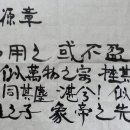 源章
用之 或不盈
似萬物之宗 挫其
同其塵 湛兮! 似
之子 象帝之先